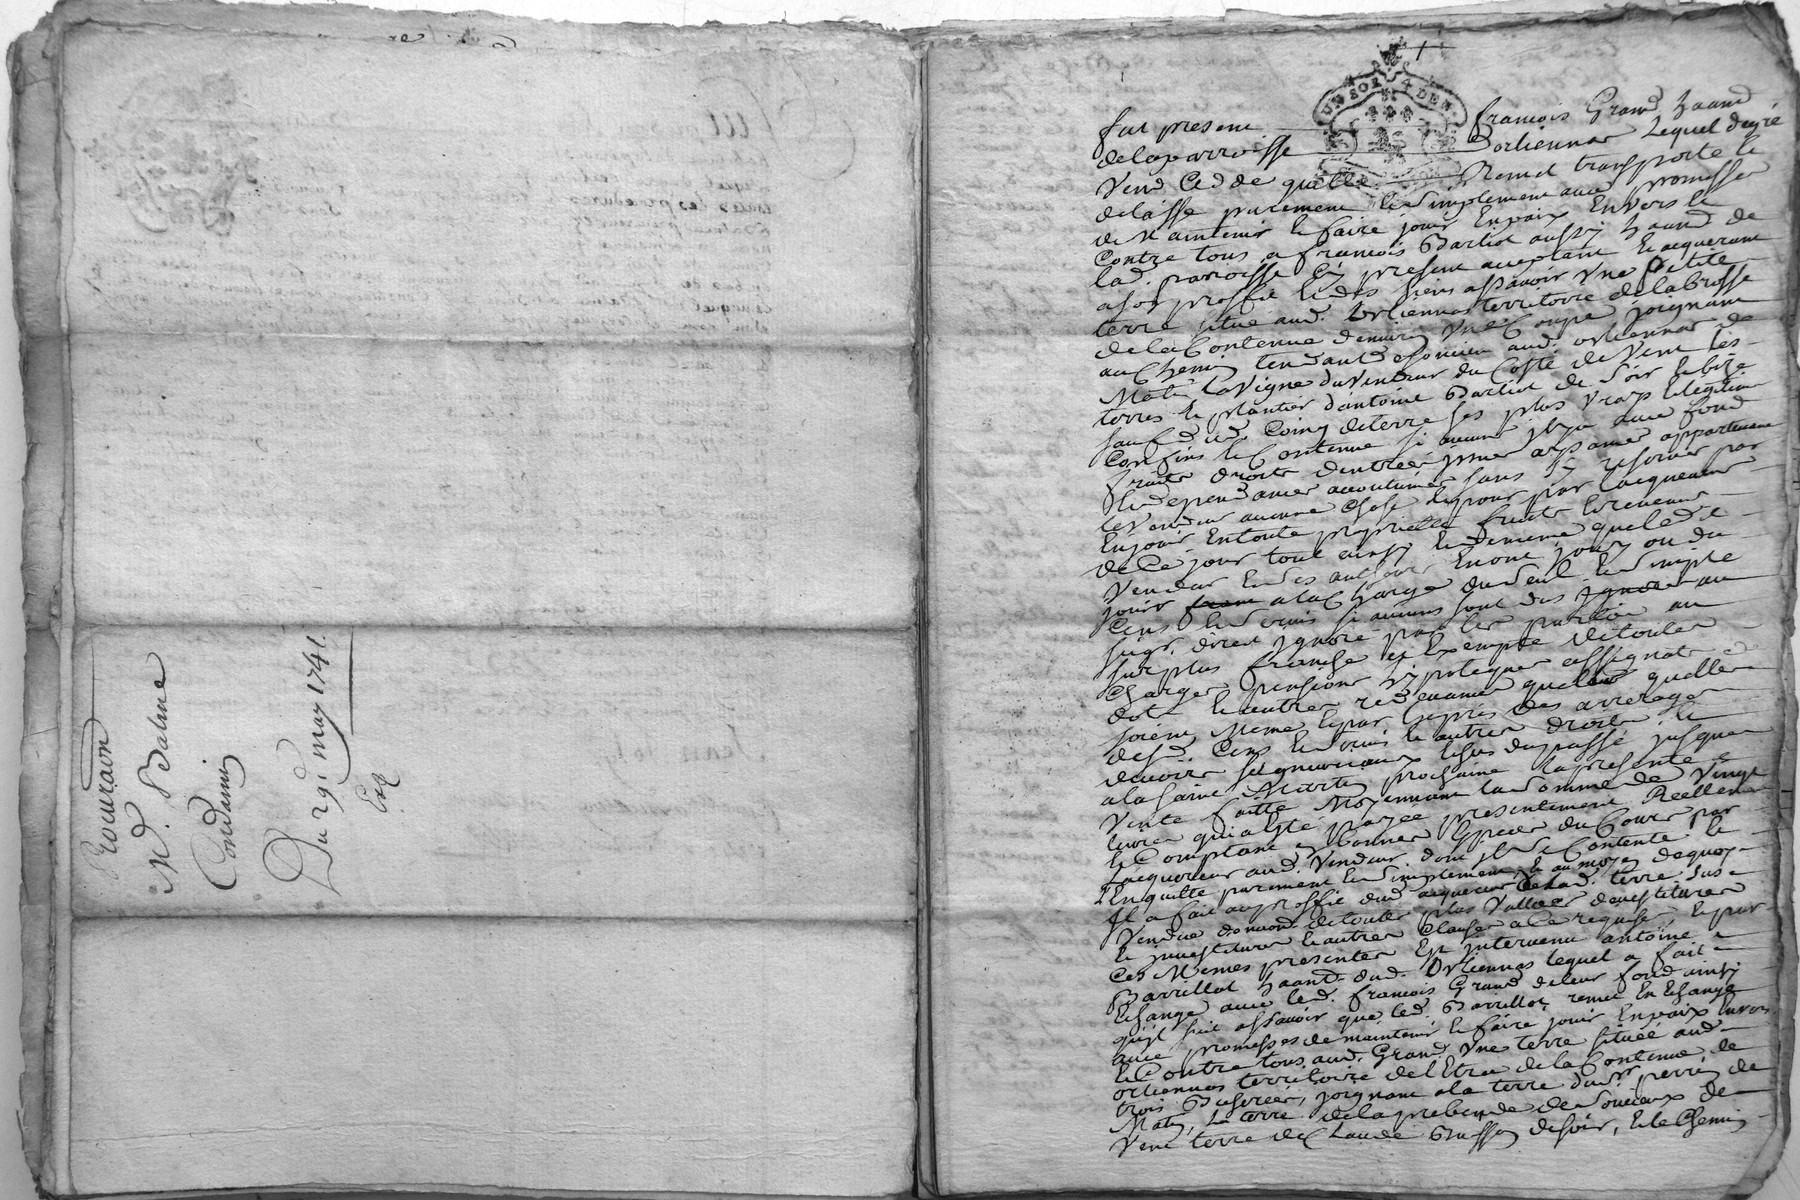 M. Balme
Condamin
Du 29e may 1741.
UN SOL 4 DEN
fut present francois Grand habitant
de la parroisse Dorliennas Lequel de gré
Vend Cedde quitte Remet transporte et
delaisse purement et simplement avec promesse
de Maintenir et faire jouir En paix Envers et
Contre tous a francois Barliot aussy habitant de
lad. parroisse Cy present acceptant et acquerant
a son proffit et des siens assavoir Une petite
terre située aud. Orliennas territoire de la Brosse
de la Contenue denviron Une Coupée joignant
au Chemin tendant aud. orliennas de
Matin La Vigne du Vendeur du Costé de Vent les
terres et plantier d'antoine Barliot de Soir et bize
sauf dud. Coing de terre ses plus Vrays et legitimes
Confins et Contenue si aucuns jl y a avec fond
fruits droits dentrées jssues aysances appartenances
et dependances accoutumées sans y reserver par
le Vendeur aucune Chose et pour par lacquereur
En jouir En toute proprieté fruits et revenus
de Ce jour tout ainsy et de meme que led.
Vendeur et ses autheurs En ont jouy ou du
jouir a la Charge du seul et simple
Cens et servis si aucuns sont dus
seigr. direct jgnoré par les parties au
surplus franche et Exempte de toutes
Charges pensions hypoteques assignats
dot et autres redevances quelles quelles
soient Meme et par Exprès des arrerages
desd. Cens et servis et autres droits et
devoirs seigneuriaux Echus du passé jusques
a la saint Martin prochaine la presente
Vente faitte Moyennant la somme de Vingt
livres qui a esté payée presentement Reellement
et Comptant En bonnes Especes du Cours par
lacquereur aud. Vendeur dont jl se Contente et
l'En quitte purement et simplement, et au moyen de quoy
Jl a fait au proffit dud. acquereur de lad. terre sus
Vendue de toutes plus Vallues devestitures
et jnvestitures et autres Clauses a Ce requises, et par
Ces Memes presentes Est jntervenu antoine
Barrillot habitant dud. Orliennas lequel a fait
Echange avec led. francois Grand de leur fond ainsy
qujl suit assavoir que led. Barrillot remet En Echange
avec promesses de maintenir et faire jouir En paix Envers
et Contre tous aud. Grand Une terre située aud.
orliennas territoire de la Contenue de
trois joignant a la terre du Sr. perrin de
Matin, La terre de la prebende de de
Vent terre de Claude Busson de soir, et le Chemin